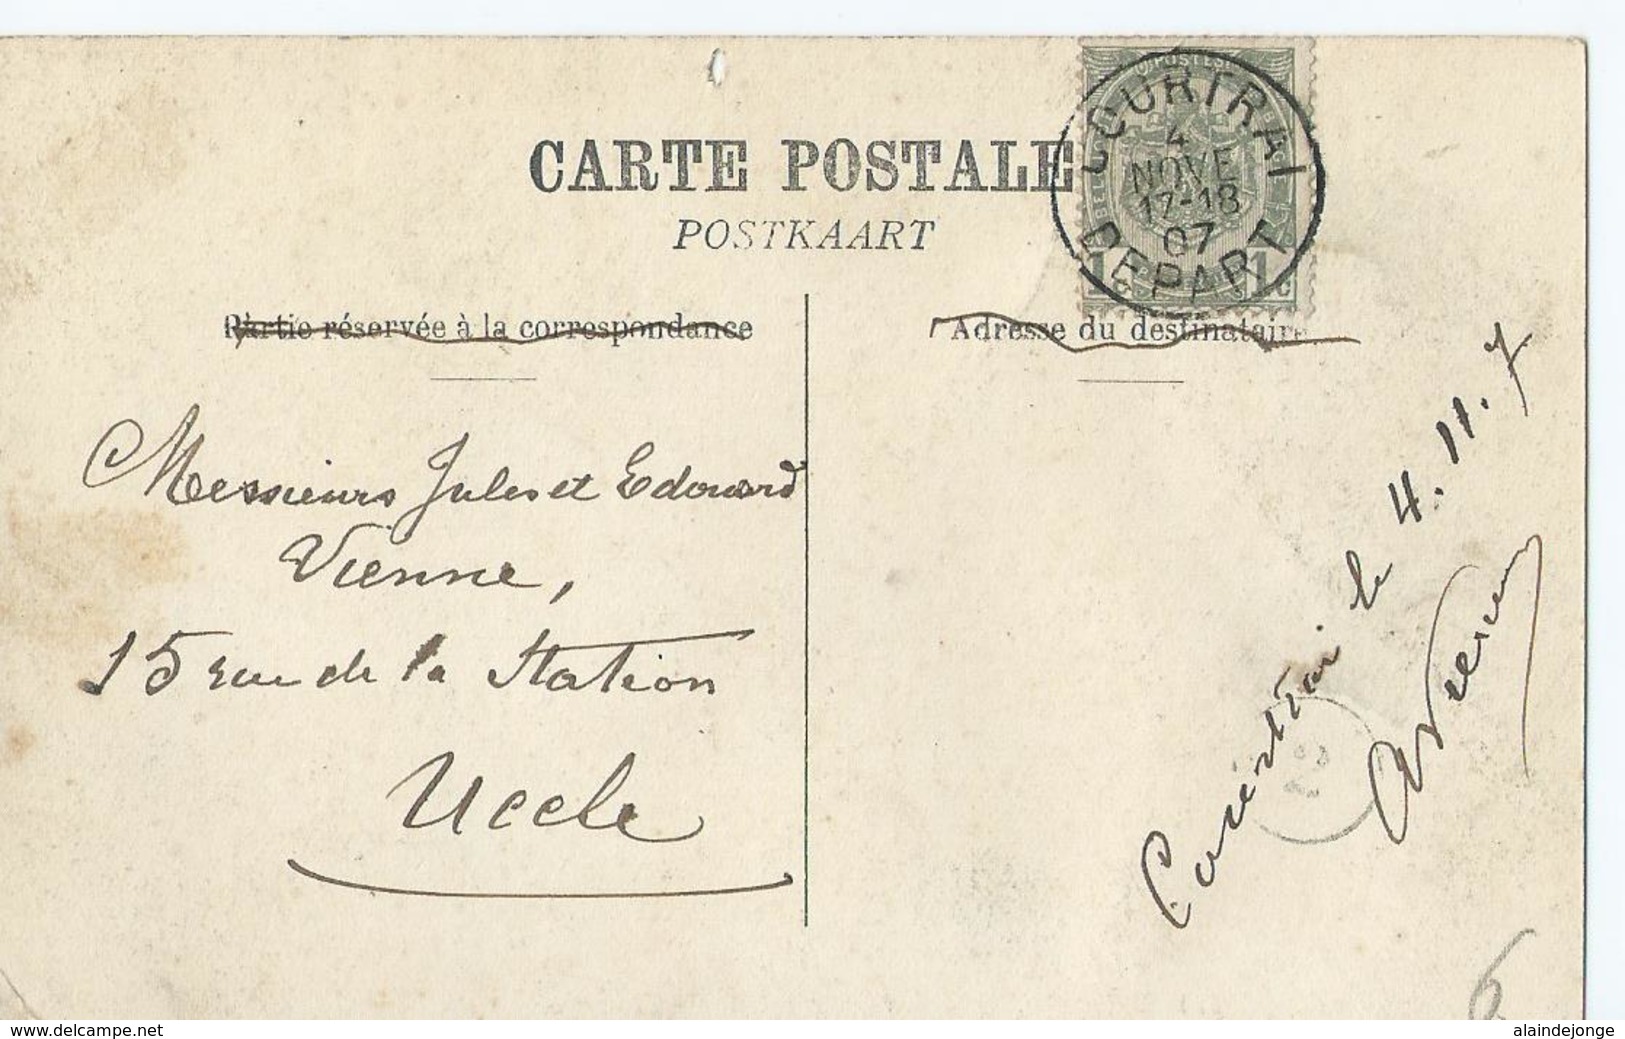 CARTE POSTALE
POSTKAART
COURTRAI
4
NOVE
17-18
07
DEPART
POSTES
1c 1c
Partie réservée à la correspondance
Adresse du destinataire
Messieurs Jules et Edouard
Vienne,
15 rue de la Station
Uccle
Courtrai le 4.11.7
www.delcampe.net
alaindejonge